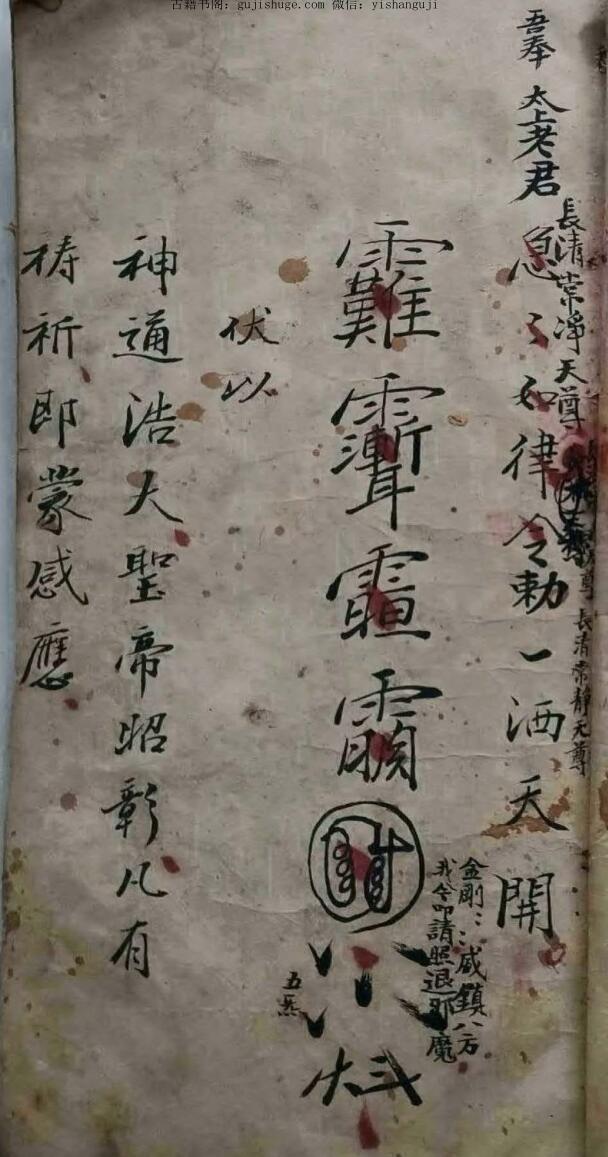 古籍书阁：gujishuge.com 微信：yishanguji
吾奉
太上老君
急〻如律令勅一洒天開
長清常淨天尊
長清常靜天尊
金剛〻〻威鎮八方
我今叩請照退邪魔
五炁
伏以
神通浩大聖帝昭彰凡有
祷祈即蒙感應